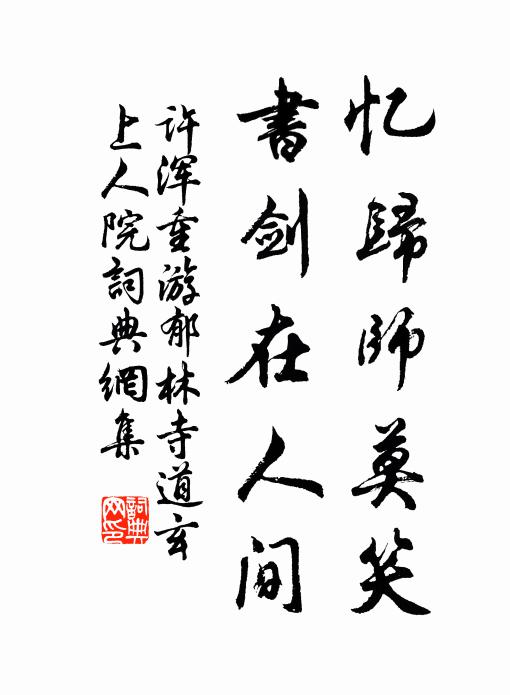 忆歸師莫笑
書剑在人间
许浑重游郁林寺道玄
上人院詞典網集
詞典網印